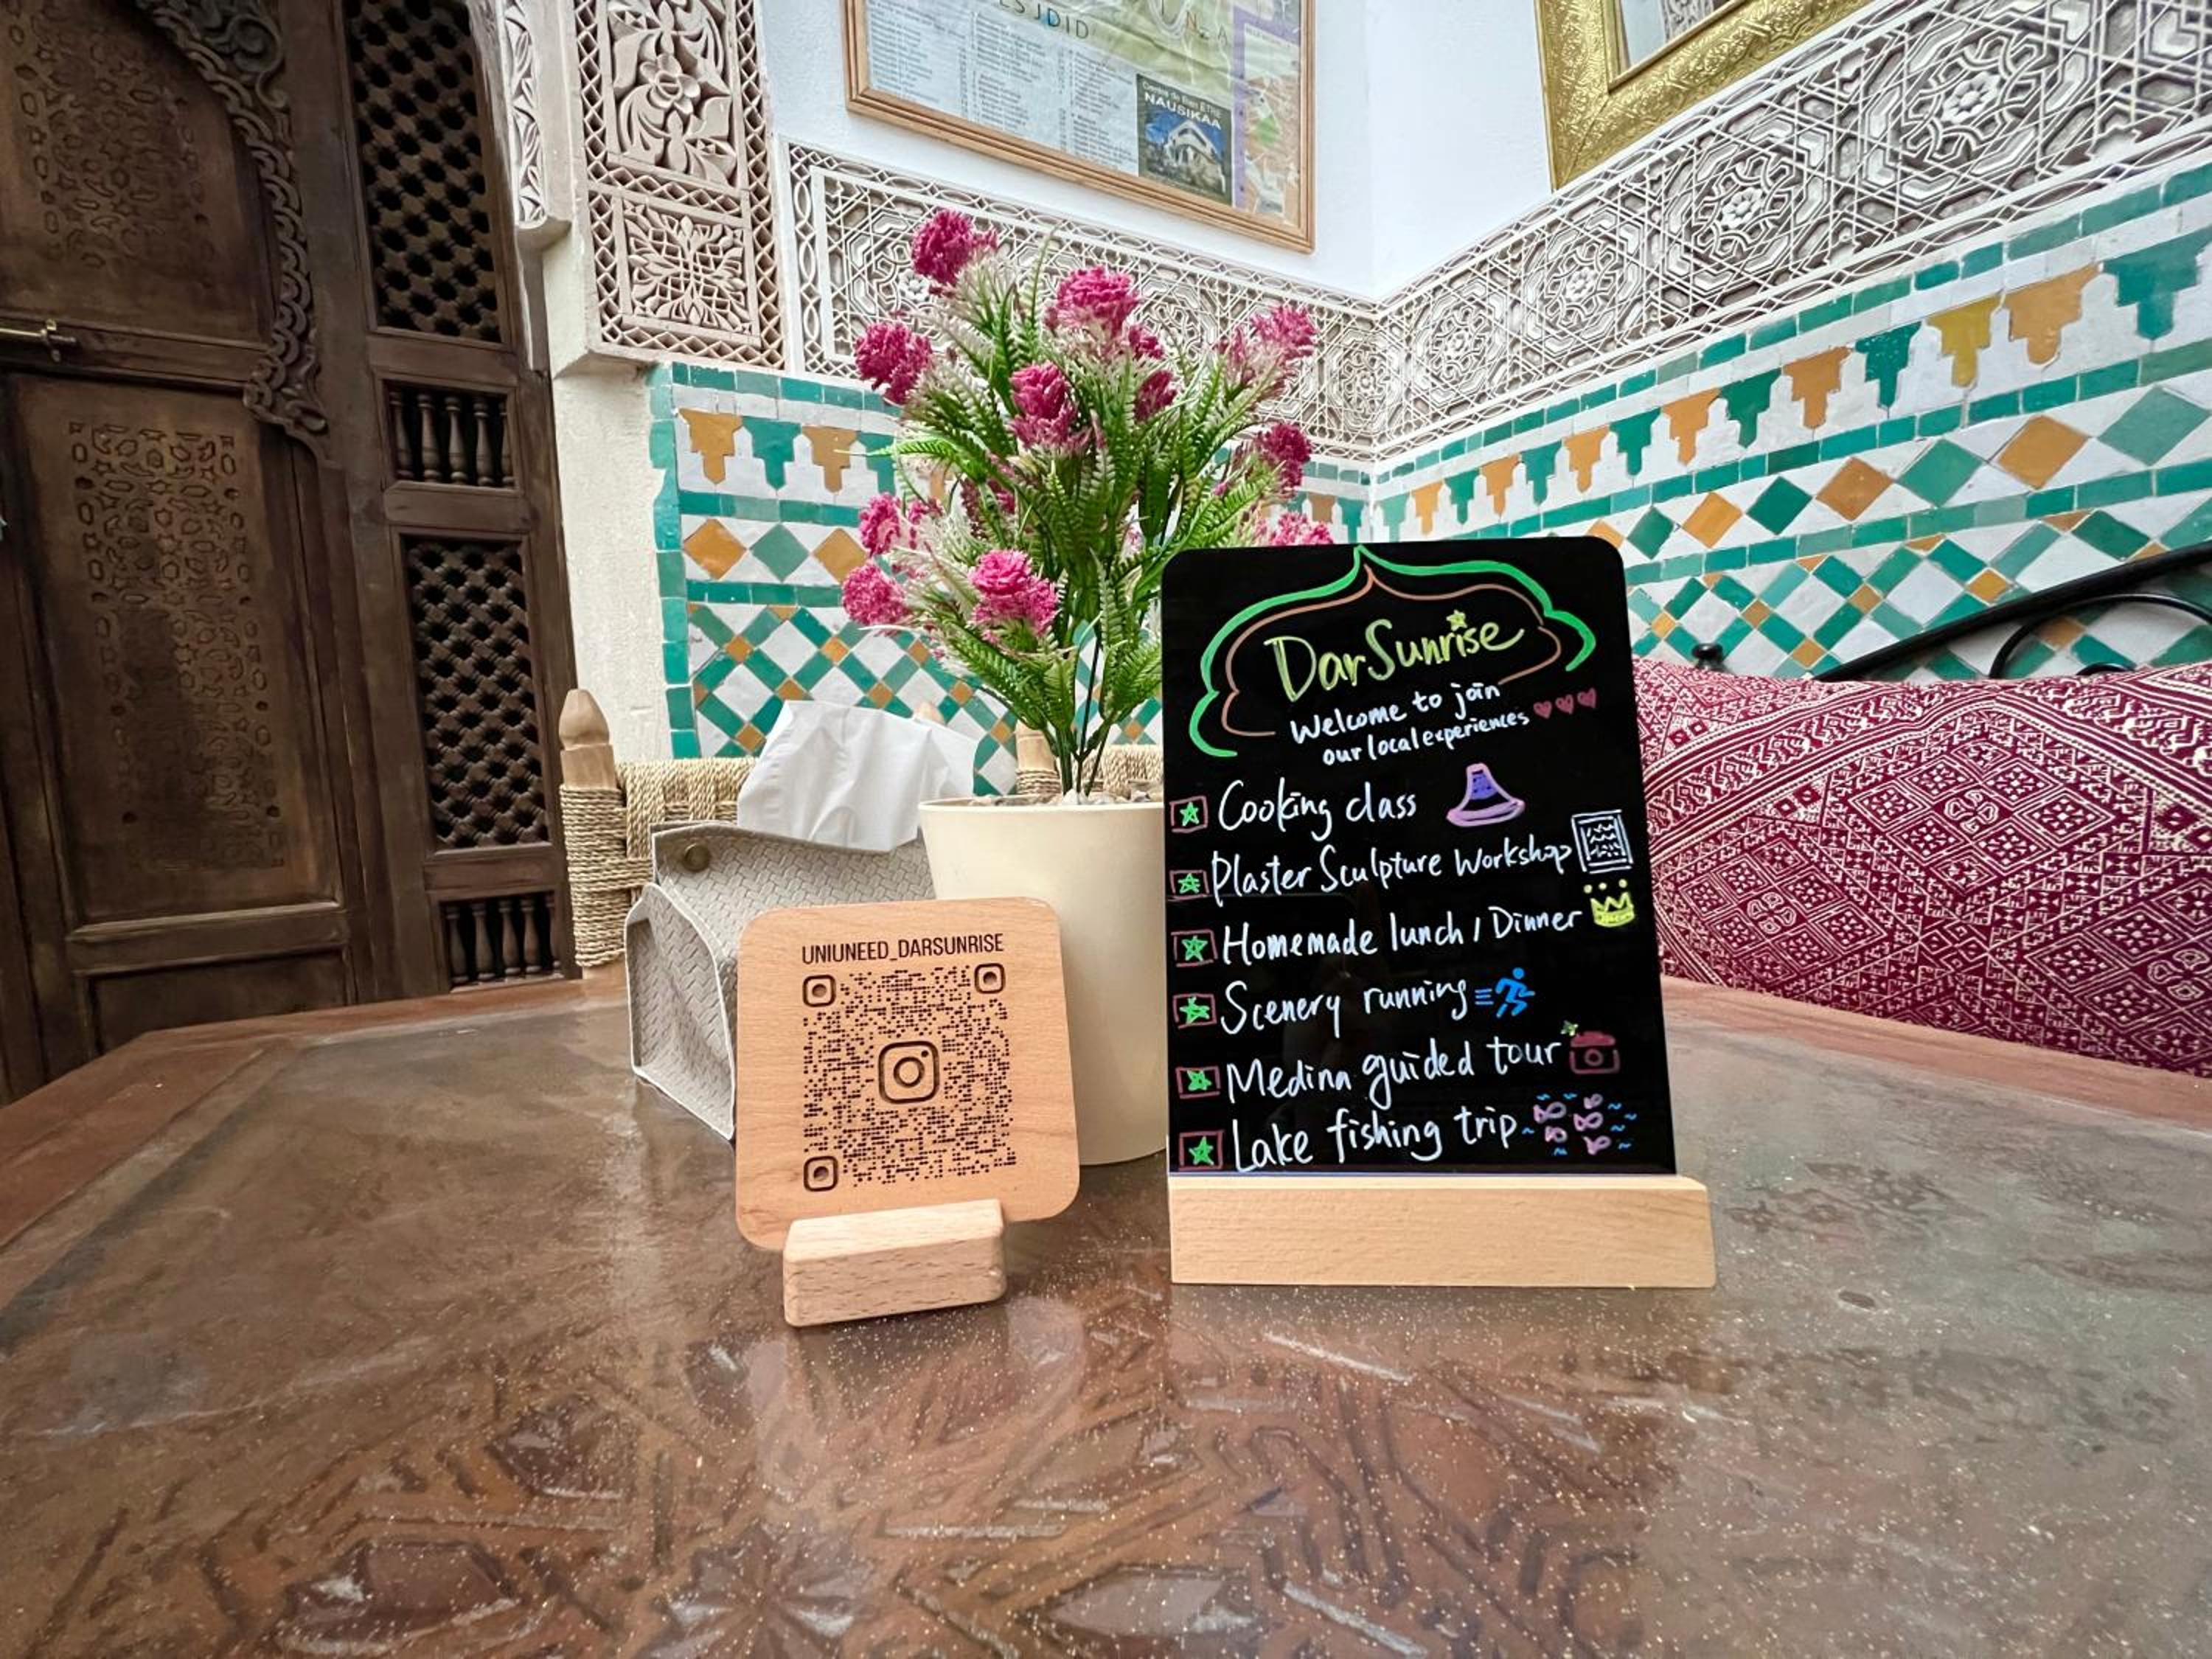 NAUSIKAA
UNIUNEED_DARSUNRISE
DarSunrise
Welcome to join
our local experiences
Cooking class
Plaster Sculpture Workshop
Homemade lunch / Dinner
Scenery running
Medina guided tour
Lake fishing trip